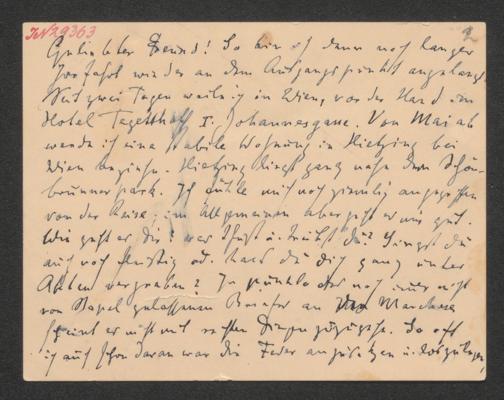 IN 29363
2
Geliebter Freund! So bin ich denn nach langer
Irrfahrt wieder an dem Ausgangspunkt angelangt
Seit zwei Tagen weile ich in Wien, vor der Hand im
Hotel Tegetthoff I. Johannesgasse. Von Mai ab
werde ich eine stabile Wohnung in Hietzing bei
Wien beziehn. Hietzing liegt ganz nahe dem Schön-
brunnerpark. Ich fühle mich noch ziemlich angegriffen
von der Reise; im Allgemeinen aber geht es mir gut.
Wie geht es dir? was thust u. treibst du? Singst du
auch noch fleissig od. hast du dich ganz unter
Akten vergraben?
von Stapel gelassenen an
scheint es nicht mit rechten Dingen zuzugehn. So oft
ich auch schon daran war die Feder anzusetzen u. loszulegen,